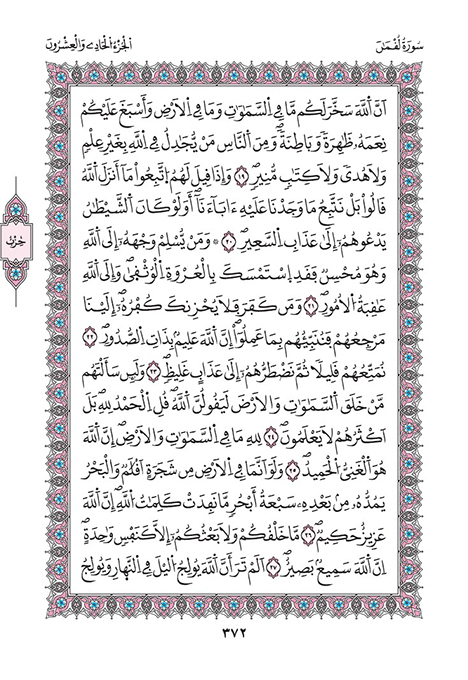 سُورَةُ لُقْمَٰنَ
الجُزْءُ الْحَادِي وَالْعِشْرُونَ
اَنَّ اَللَّهَ سَخَّرَ لَكُم مَّا فِي اِ۬لسَّمَٰوَٰتِ وَمَا فِي اِ۬لَارْضِ وَأَسْبَغَ عَلَيْكُمْ
نِعَمَهُۥ ظَٰهِرَةٗ وَبَاطِنَةٗۖ وَمِنَ اَ۬لنَّاسِ مَنْ يُّجَٰدِلُ فِي اِ۬للَّهِ بِغَيْرِ عِلْمٖ
وَلَا هُدىٗ وَلَا كِتَٰبٖ مُّنِيرٖۖ ١٩ وَإِذَا قِيلَ لَهُمُ اُ۪تَّبِعُواْ مَآ أَنزَلَ اَ۬للَّهُ
قَالُواْ بَلْ نَتَّبِعُ مَا وَجَدْنَا عَلَيْهِ ءَابَآءَنَآۖ أَوَلَوْ كَانَ اَ۬لشَّيْطَٰنُ
يَدْعُوهُمُۥٓ إِلَىٰ عَذَابِ اِ۬لسَّعِيرِۖ ٢٠ ۞ وَمَنْ يُّسْلِمْ وَجْهَهُۥٓ إِلَى اَ۬للَّهِ
وَهُوَ مُحْسِنٞ فَقَدِ اِ۪سْتَمْسَكَ بِالْعُرْوَةِ اِ۬لْوُثْقَىٰۖ وَإِلَى اَ۬للَّهِ
عَٰقِبَةُ اُ۬لُامُورِۖ ٢١ وَمَن كَفَرَ فَلَا يُحْزِنكَ كُفْرُهُۥٓۖ إِلَيْنَا
مَرْجِعُهُمْ فَنُنَبِّئُهُم بِمَا عَمِلُوٓاْۖ إِنَّ اَ۬للَّهَ عَلِيمُۢ بِذَاتِ اِ۬لصُّدُورِۖ ٢٢
نُمَتِّعُهُمْ قَلِيلاٗ ثُمَّ نَضْطَرُّهُمُۥٓ إِلَىٰ عَذَابٍ غَلِيظٖۖ ٢٣ وَلَئِن سَأَلْتَهُم
مَّنْ خَلَقَ اَ۬لسَّمَٰوَٰتِ وَالَارْضَ لَيَقُولُنَّ اَ۬للَّهُۖ قُلِ اِ۬لْحَمْدُ لِلهِۖ بَلَ
اَكْثَرُهُمْ لَا يَعْلَمُونَۖ ٢٤ لِلهِ مَا فِي اِ۬لسَّمَٰوَٰتِ وَالَارْضِۖ إِنَّ اَ۬للَّهَ
هُوَ اَ۬لْغَنِيُّ اُ۬لْحَمِيدُۖ ٢٥ وَلَوَ اَنَّمَا فِي اِ۬لَارْضِ مِن شَجَرَةٍ اَقْلَٰمٞ وَالْبَحْرُ
يَمُدُّهُۥ مِنۢ بَعْدِهِۦ سَبْعَةُ أَبْحُرٖ مَّا نَفِدَتْ كَلِمَٰتُ اُ۬للَّهِۖ إِنَّ اَ۬للَّهَ
عَزِيزٌ حَكِيمٞۖ ٢٦ مَّا خَلْقُكُمْ وَلَا بَعْثُكُمُۥٓ إِلَّا كَنَفْسٖ وَٰحِدَةٍۖ
اِنَّ اَ۬للَّهَ سَمِيعُۢ بَصِيرٌۖ ٢٧ اَلَمْ تَرَ أَنَّ اَ۬للَّهَ يُولِجُ اُ۬ليْلَ فِي اِ۬لنَّهَارِ وَيُولِجُ
حزب
٣٧٢